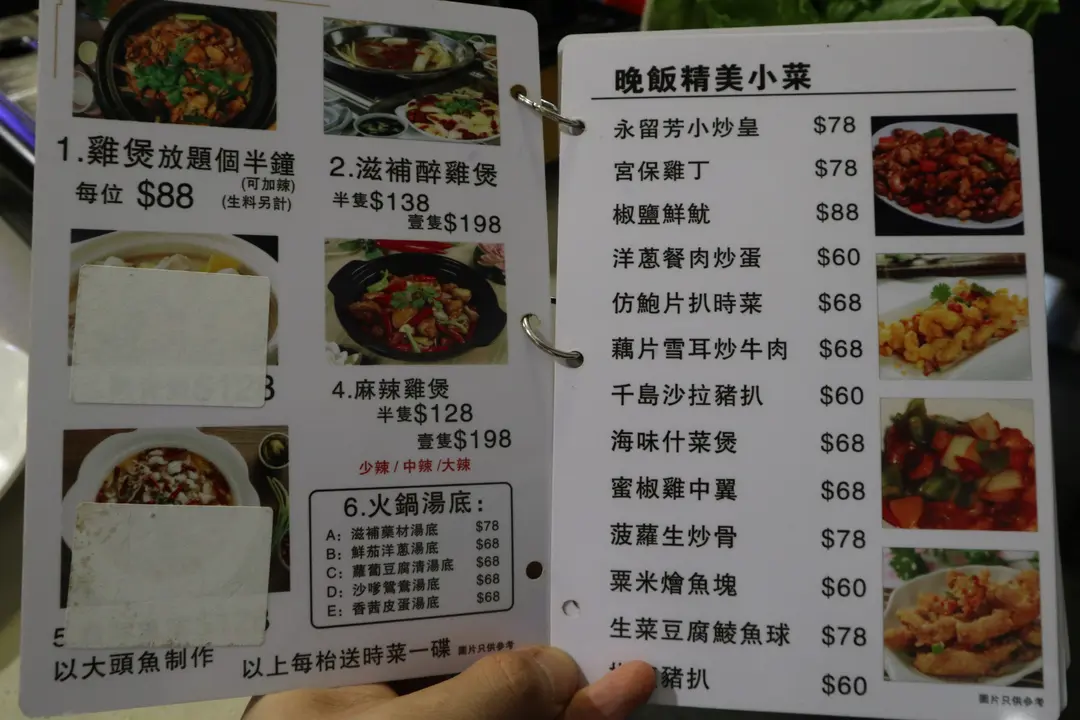 1.雞煲放題個半鐘
(可加辣)
每位 $88 (生料另計)
2.滋補醉雞煲
半隻$138
壹隻$198
4.麻辣雞煲
半隻$128
壹隻$198
少辣/中辣/大辣
6.火鍋湯底:
A: 滋補藥材湯底 $78
B: 鮮茄洋蔥湯底 $68
C: 蘿蔔豆腐清湯底 $68
D: 沙嗲鴛鴦湯底 $68
E: 香茜皮蛋湯底 $68
以大頭魚制作
以上每枱送時菜一碟 圖片只供參考
晚飯精美小菜
永留芳小炒皇 $78
宮保雞丁 $78
椒鹽鮮魷 $88
洋蔥餐肉炒蛋 $60
仿鮑片扒時菜 $68
藕片雪耳炒牛肉 $68
千島沙拉豬扒 $60
海味什菜煲 $68
蜜椒雞中翼 $68
菠蘿生炒骨 $78
粟米燴魚塊 $60
生菜豆腐鯪魚球 $78
豬扒 $60
圖片只供參考